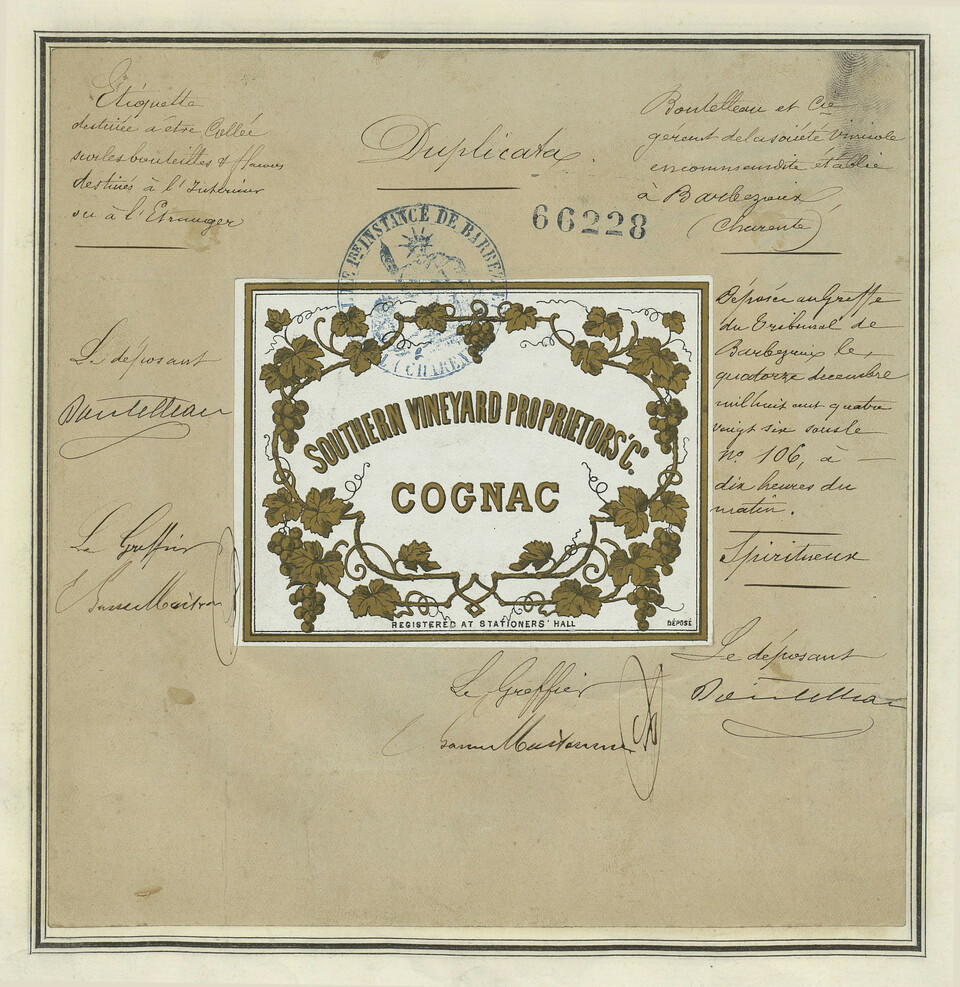 Etiquette
destinée à être Collée
sur les bouteilles & flacons
destinés à l'Intérieur
ou à l'Etranger
Duplicata.
66228
Boutelleau et Cie
gérant de la société Vinicole
en commandite établie
à Barbezieux
(Charente)
1RE INSTANCE DE BARBEZ
LA CHAREN
Le déposant
Boutelleau
Le Greffier
SOUTHERN VINEYARD PROPRIETORS' Co.
COGNAC
REGISTERED AT STATIONERS' HALL
DÉPOSÉ
Déposée au Greffe
du Tribunal de
Barbezieux le,
quatorze decembre
mil huit cent quatre
vingt six sous le
No. 106, à —
dix heures du
matin.
Spiritueux
Le déposant
Boutelleau
Le Greffier